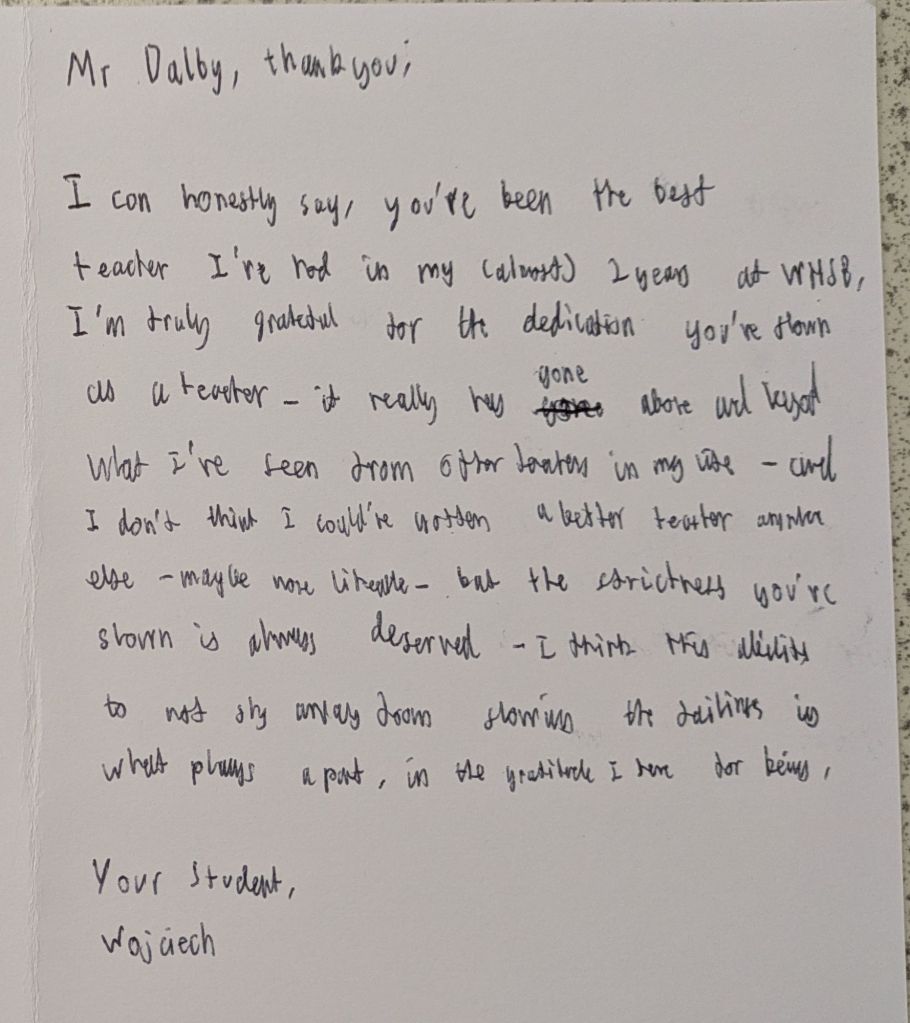 Mr Dalby, thank you;
I can honestly say, you've been the best
teacher I've had in my (almost) 2 years at WHSB,
I'm truly grateful for the dedication you've shown
as a teacher - it really has gone above and beyond
what I've seen from other teachers in my life - and
I don't think I could've gotten a better teacher anywhere
else - maybe more likeable - but the strictness you've
shown is always deserved - I think this ability
to not shy away from showing the failings is
what plays a part, in the gratitude I have for being,
Your student,
Wojciech